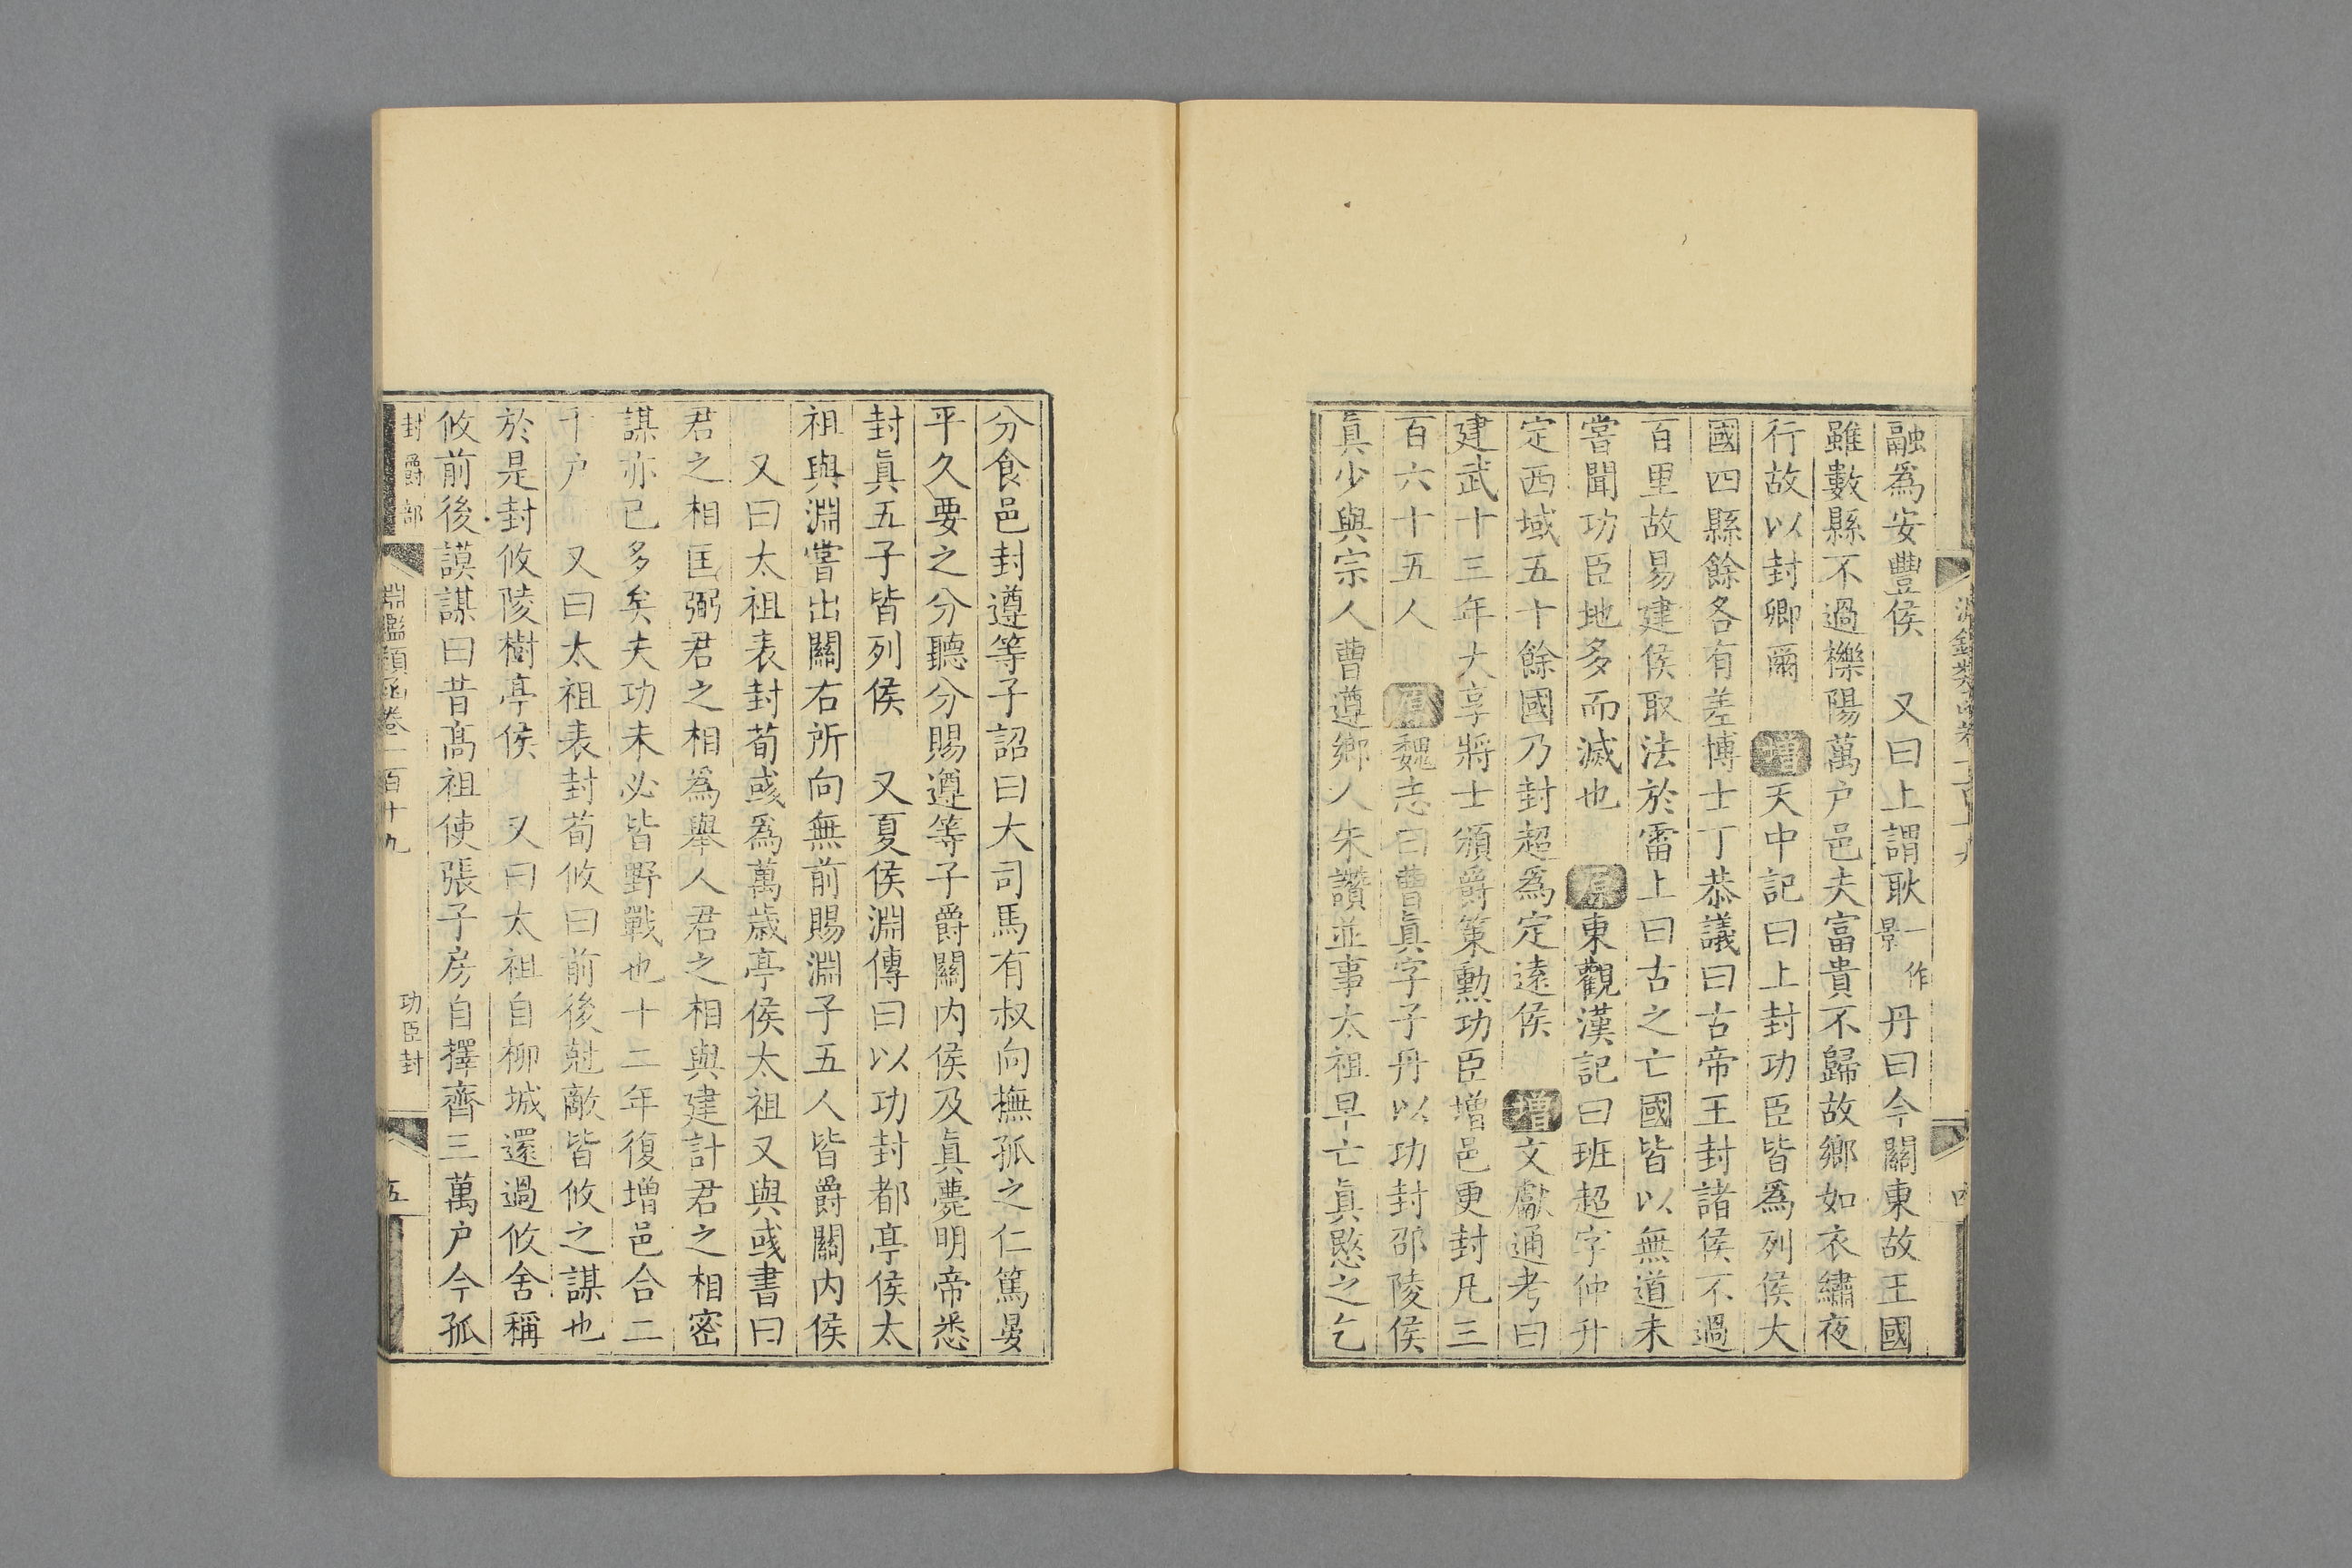 融爲安豐侯　又曰上謂耿一作景丹曰今關東故王國
雖數縣不過櫟陽萬户邑夫富貴不歸故鄉如衣繡夜
行故以封卿爾　增天中記曰上封功臣皆爲列侯大
國四縣餘各有差博士丁恭議曰古帝王封諸侯不過
百里故易建侯取法於雷上曰古之亡國皆以無道未
嘗聞功臣地多而滅也　原東觀漢記曰班超字仲升
定西域五十餘國乃封超爲定遠侯　增文獻通考曰
建武十三年大享將士頒爵策勲功臣增邑更封凡三
百六十五人　原魏志曰曹真字子丹以功封邵陵侯
真少與宗人曹遵鄉人朱讚並事太祖早亡真愍之乞
分食邑封遵等子詔曰大司馬有叔向撫孤之仁篤晏
平久要之分聽分賜遵等子爵關内侯及真薨明帝悉
封真五子皆列侯　又夏侯淵傳曰以功封都亭侯太
祖與淵嘗出關右所向無前賜淵子五人皆爵關内侯
　又曰太祖表封荀彧爲萬歲亭侯太祖又與彧書曰
君之相匡弼君之相爲舉人君之相與建計君之相密
謀亦已多矣夫功未必皆野戰也十二年復增邑合二
千户　又曰太祖表封荀攸曰前後尅敵皆攸之謀也
於是封攸陵樹亭侯　又曰太祖自柳城還過攸舍稱
攸前後謨謀曰昔髙祖使張子房自擇齊三萬户今孤
封爵部　淵鑑類函卷一百十九　功臣封　五